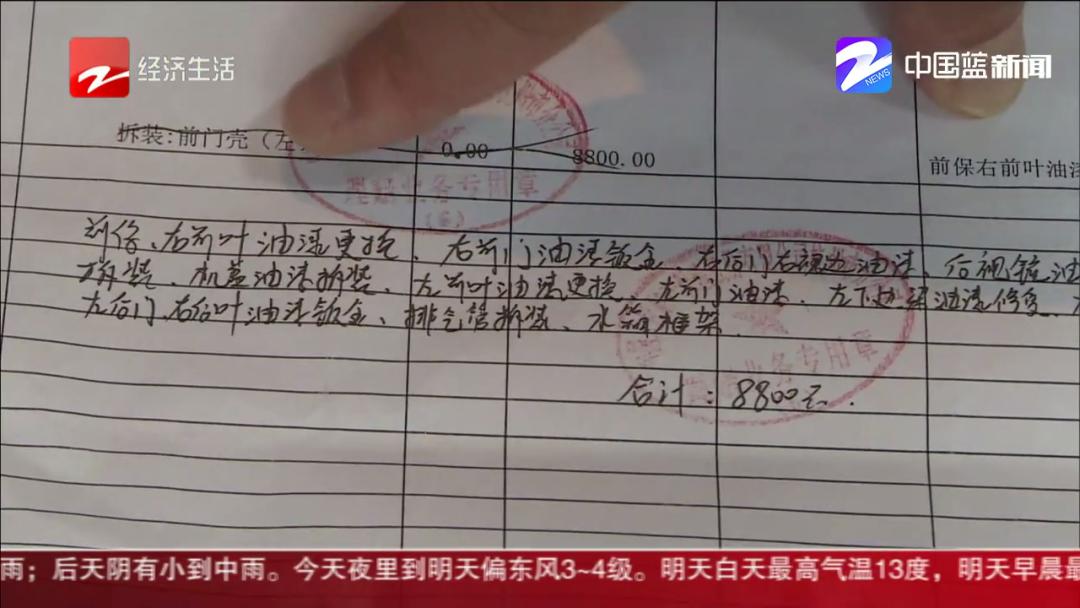 经济生活
中国蓝新闻
NEWS
拆装:前门壳(左
0.00
8800.00
前保右前叶油漆
理赔业务专用章
前保、右前叶油漆更换、右前门油漆钣金 右后门右裙边油漆、后视镜油
拆装、机盖油漆拆装、左前叶油漆更换、左前门油漆、左下 油漆修复、
左后门、右后叶油漆钣金、排气管拆装、水箱框架.
业务专用章
合计:8800元.
雨;后天阴有小到中雨。今天夜里到明天偏东风3~4级。明天白天最高气温13度,明天早晨最